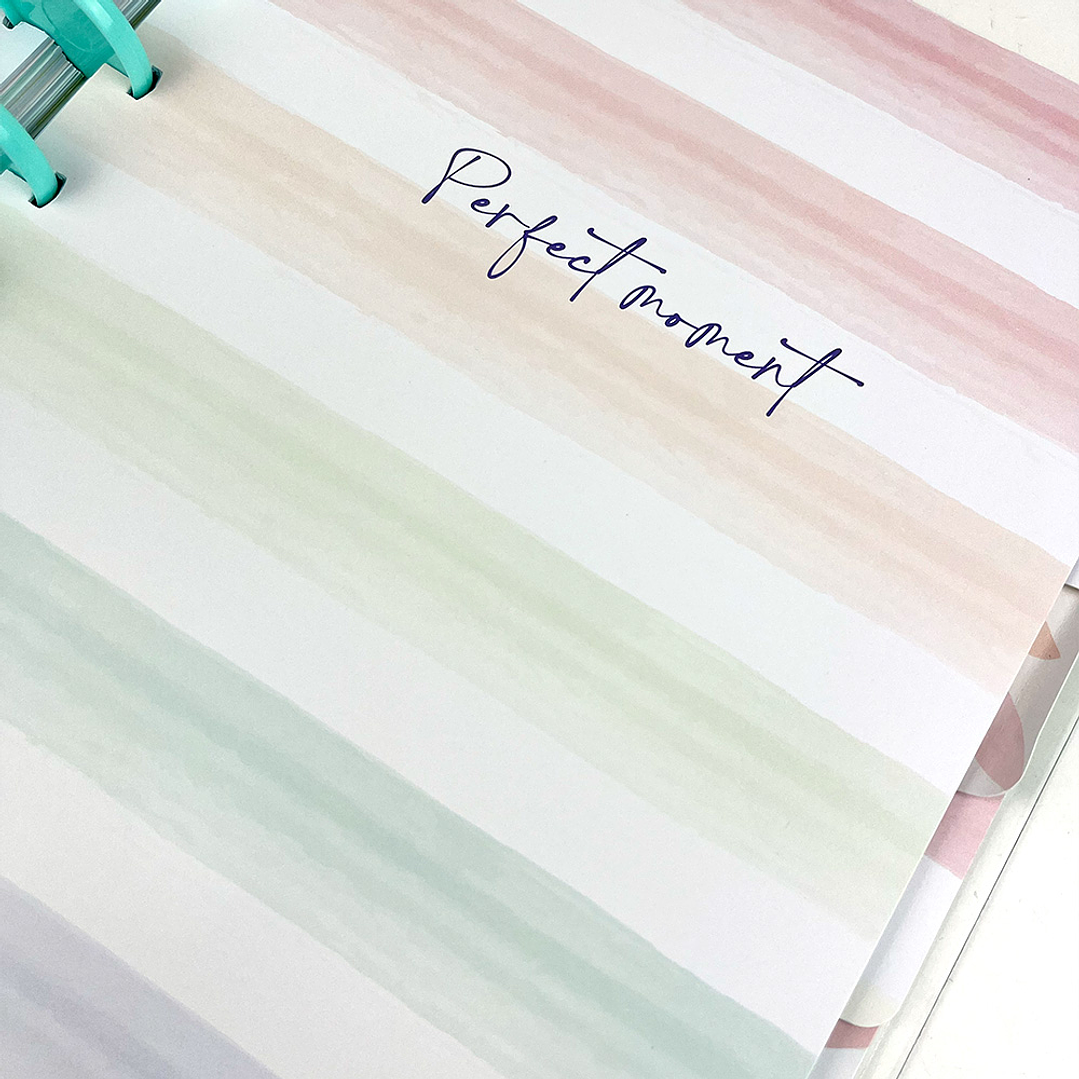 Perfect moment